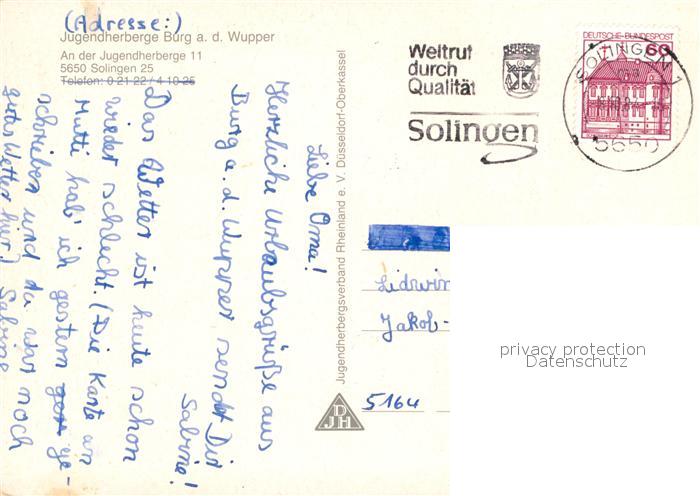 (Adresse:)
Jugendherberge Burg a. d. Wupper
An der Jugendherberge 11
5650 Solingen 25
Telefon: 0 21 22 / 4 10 25
Liebe Oma!
Herzliche Urlaubsgrüße aus
Burg a. d. Wupper sendet Dir
Sabine!
Das Wetter ist heute schon
wieder schlecht. (Die Karte an
Mutti hab' ich gestern ge-
schrieben und da war noch
gutes Wetter hier) Sabine
Jugendherbergsverband Rheinland e. V. Düsseldorf-Oberkassel
DJH
Weltruf
durch
Qualität
Solingen
DEUTSCHE BUNDESPOST
60
SOLINGEN 1
5650
Lidwin
Jakob-
5164
privacy protection
Datenschutz